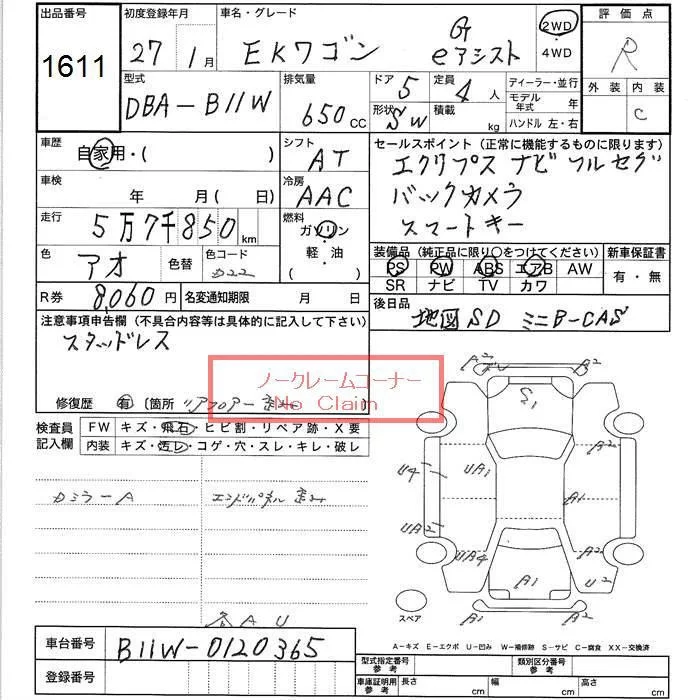 出品番号 初度登録年月 車名・グレード 2WD 評価点
1611 27年 1月 EKワゴン G eアシスト ・4WD R
外装 内装
C
型式 排気量 ドア 5 定員 4人 ディーラー・並行
DBA-B11W 650cc 形状 SW 積載 kg モデル年式 年
ハンドル 左・右
車歴 自家用・( ) シフト AT セールスポイント (正常に機能するものに限ります)
エクリプス ナビ フルセグ
車検 年 月 ( 日) 冷房 AAC バックカメラ
スマートキー
走行 5万7千850km 燃料 ガソリン
軽・油
( )
色 アオ 色替 色コード 装備品 (純正品に限り〇をつけてください) 新車保証書
PS PW ABS エアB AW 有・無
SR ナビ TV カワ
R券 8,060円 名変通知期限 月 日 後日品
地図SD ミニB-CAS
注意事項申告欄 (不具合内容等は具体的に記入して下さい)
スタッドレス
ノークレームコーナー
No Claim
修復歴 有 〔箇所 リアフロアー歪み
検査員記入欄 FW キズ・飛石・ヒビ割・リペア跡・X要
内装 キズ・汚レ・コゲ・穴・スレ・キレ・破レ
カミラーA エンドパネル歪み
各AU
A2 A2
S1
U4 UA1 A1
UA2 UA4 A2 A2
A1 U2
スペア A2
車台番号 B11W-0120365
登録番号
A-キズ E-エクボ U-凹み W-補修跡 S-サビ C-腐食 XX-交換済
型式指定番号参考 類別区分番号参考
車庫証明用参考 長さ cm 幅 cm 高さ cm